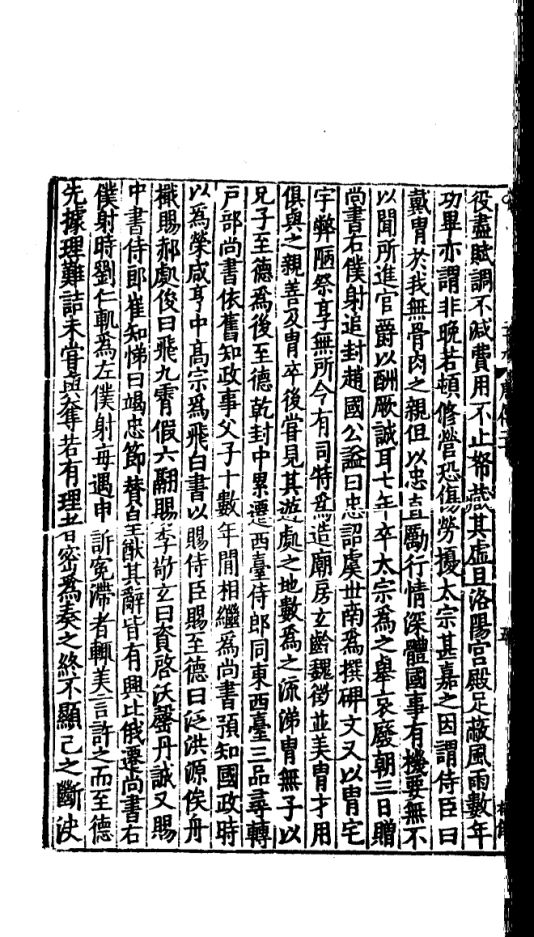 役盡賦調不減費用不止帑藏其虛且洛陽宮殿足蔽風雨數年
功畢亦謂非晚若頓修營恐傷勞擾太宗甚嘉之因謂侍臣曰
戴胄於我無骨肉之親但以忠直勵行情深體國事有機要無不
以聞所進官爵以酬厥誠耳七年卒太宗爲之舉哀廢朝三日贈
尚書右僕射追封趙國公謚曰忠詔虞世南爲撰碑文又以胄宅
宇弊陋祭享無所令有司特爲造廟房玄齡魏徵並美胄才用
俱與之親善及胄卒後嘗見其遊處之地數爲之流涕胄無子以
兄子至德爲後至德乾封中累遷西臺侍郎同東西臺三品尋轉
戶部尚書依舊知政事父子十數年間相繼爲尚書預知國政時
以爲榮咸亨中高宗爲飛白書以賜侍臣賜至德曰泛洪源俟舟
檝賜郝處俊曰飛九霄假六翮賜李敬玄曰資啓沃罄丹誠又賜
中書侍郎崔知悌曰竭忠節贊皇猷其辭皆有興比俄遷尚書右
僕射時劉仁軌為左僕射每遇申訴冤滯者輒美言許之而至德
先據理難詰未甞與奪若有理者密爲奏之終不顯己之斷決